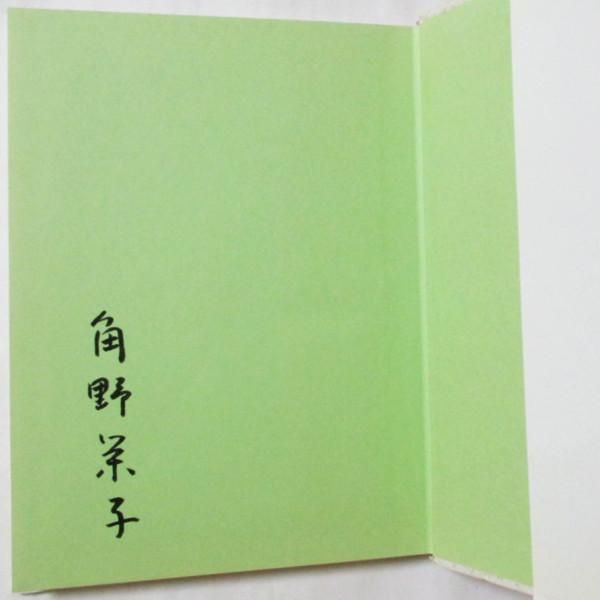 角野栄子